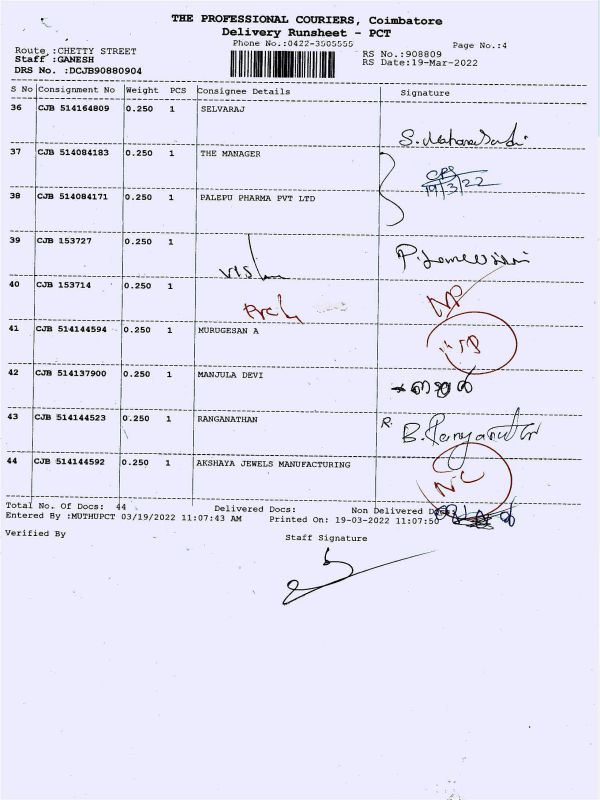 THE PROFESSIONAL COURIERS, Coimbatore
Delivery Runsheet - PCT
Phone No.:0422-3505555 Page No.:4
Route :CHETTY STREET RS No.:908809
Staff :GANESH RS Date:19-Mar-2022
DRS No. :DCJB90880904
S No Consignment No Weight PCS Consignee Details Signature
36 CJB 514164809 0.250 1 SELVARAJ
37 CJB 514084183 0.250 1 THE MANAGER
19/3/22
38 CJB 514084171 0.250 1 PALEPU PHARMA PVT LTD
39 CJB 153727 0.250 1
40 CJB 153714 0.250 1
NP
41 CJB 514144594 0.250 1 MURUGESAN A
42 CJB 514137900 0.250 1 MANJULA DEVI
43 CJB 514144523 0.250 1 RANGANATHAN R.
44 CJB 514144592 0.250 1 AKSHAYA JEWELS MANUFACTURING
NC
Total No. Of Docs: 44 Delivered Docs: Non Delivered
Entered By :MUTHUPCT 03/19/2022 11:07:43 AM Printed On: 19-03-2022 11:07:50
Verified By Staff Signature